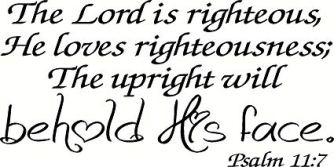 The Lord is righteous,
He loves righteousness;
The upright will
behold His face.
Psalm 11:7